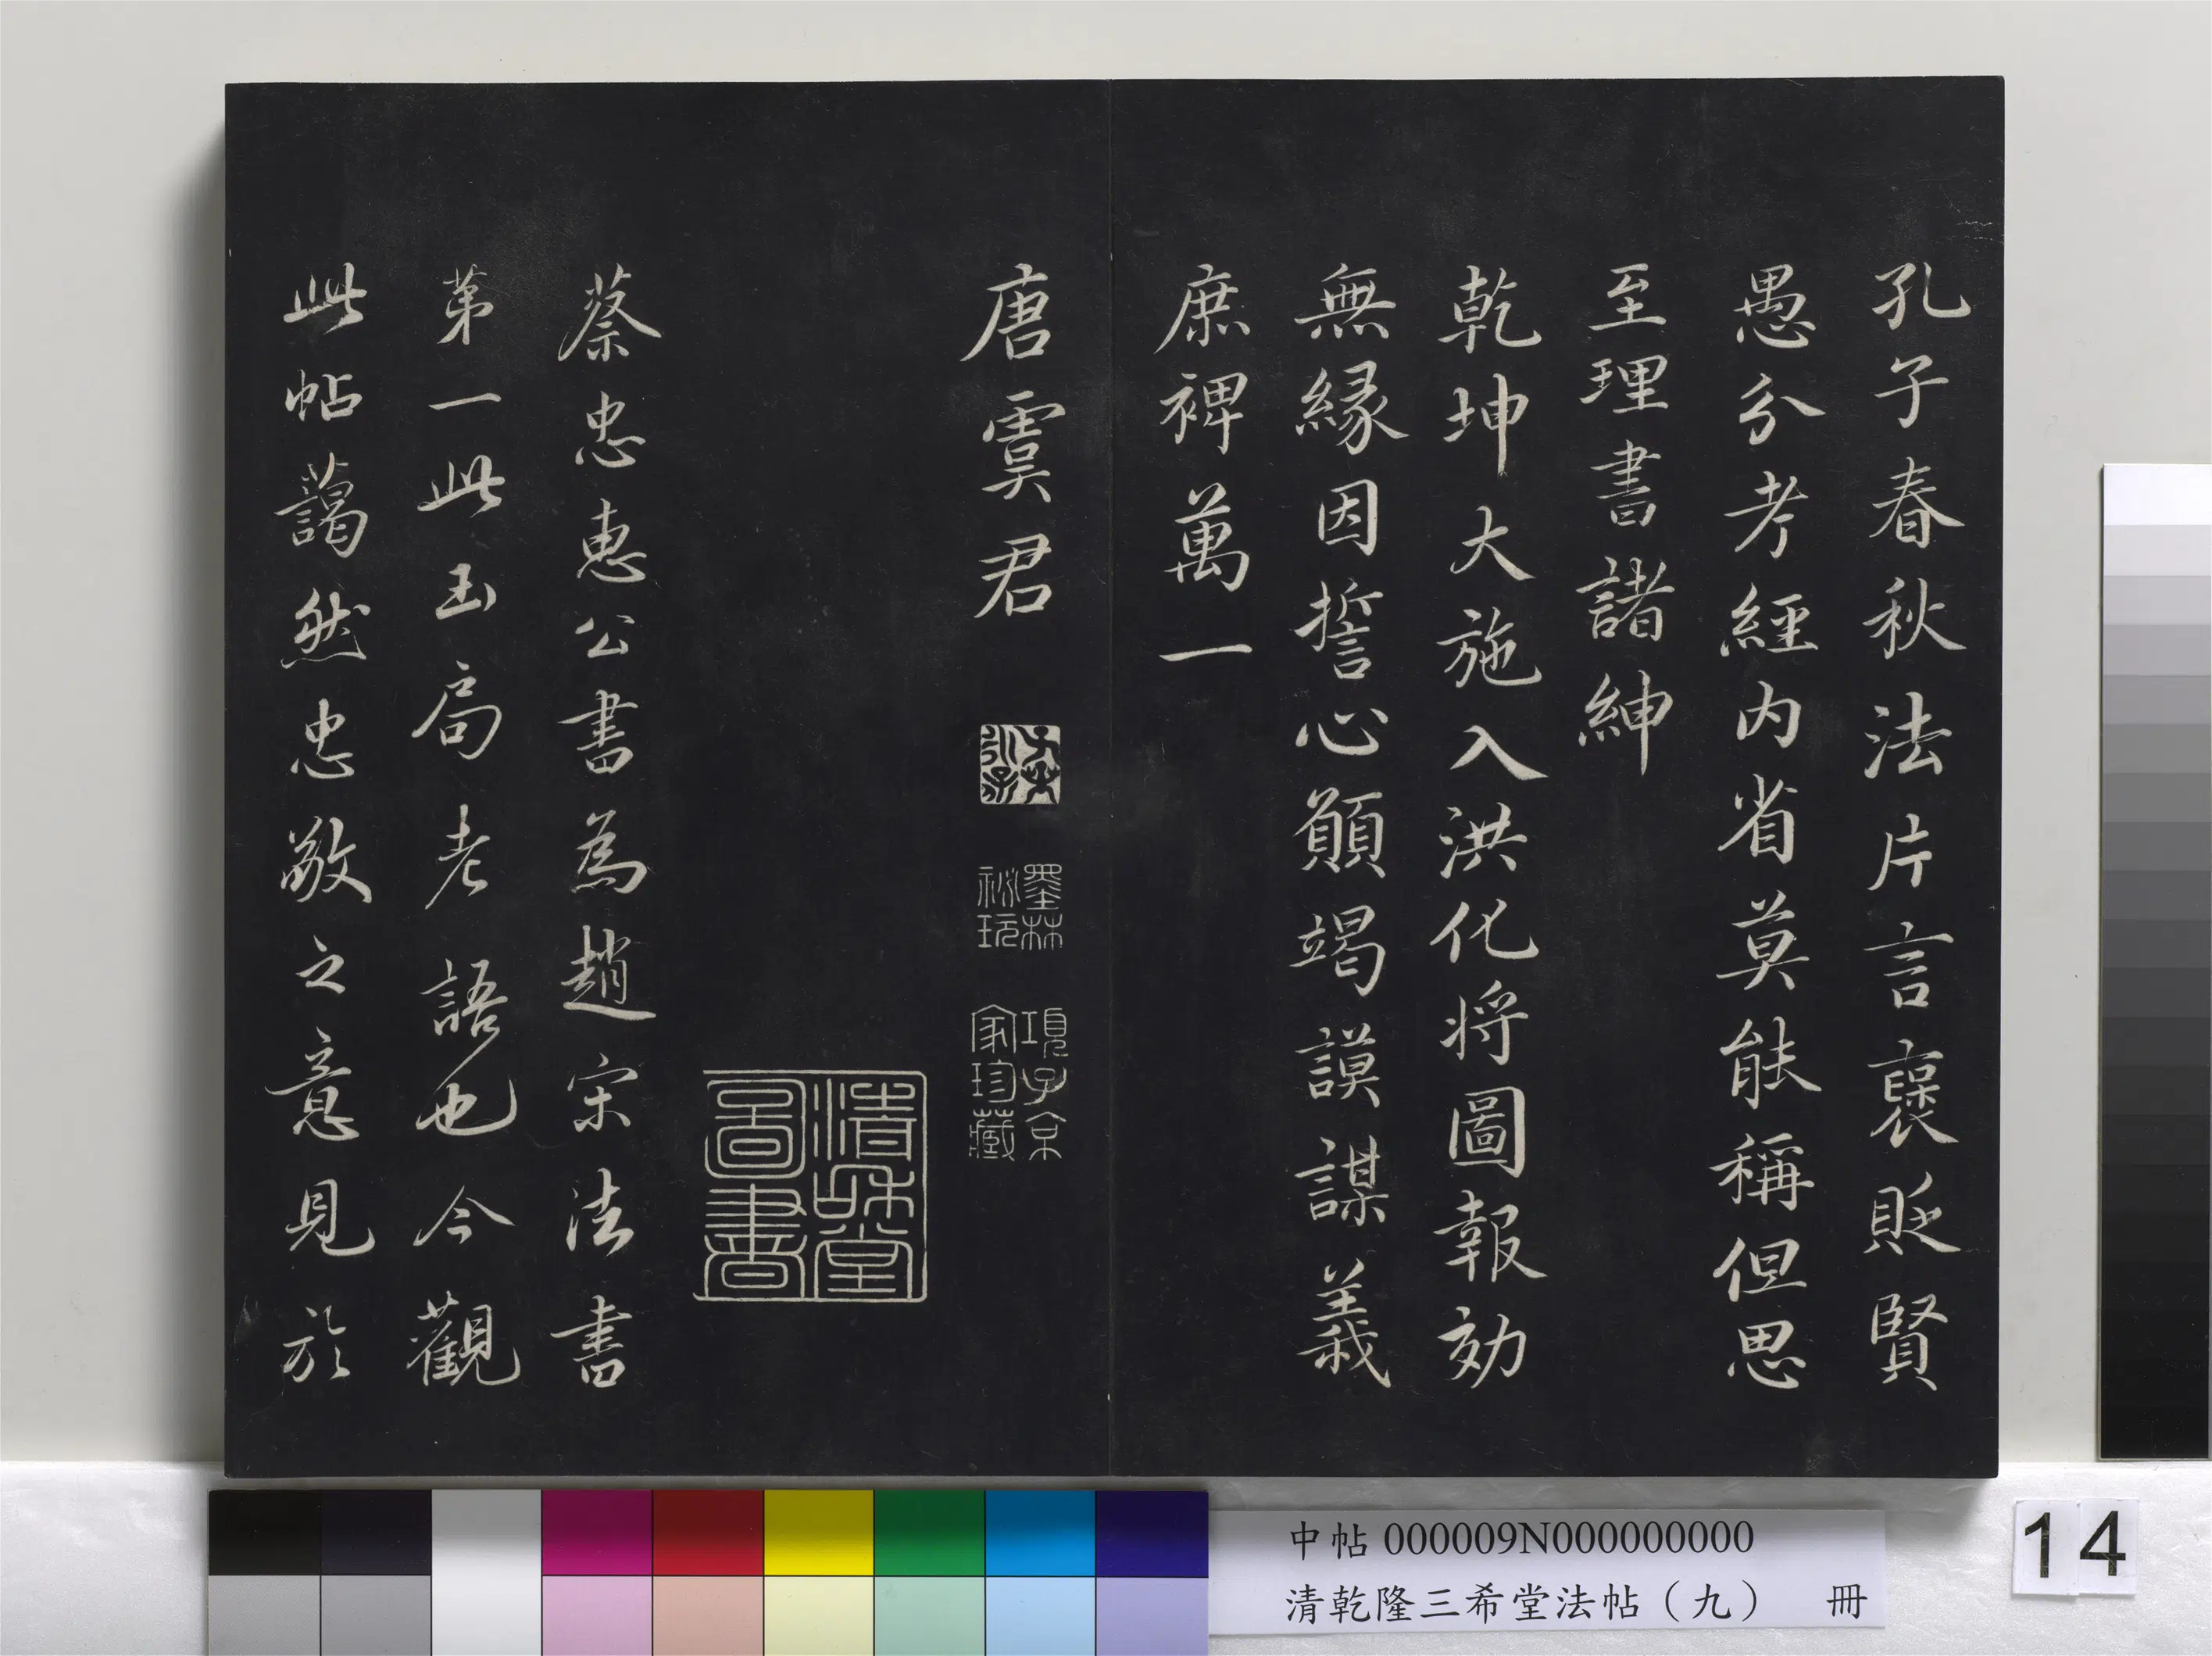 孔子春秋法片言襃貶賢
愚分考經內省莫能稱但思
至理書諸紳
乾坤大施入洪化將圖報効
無緣因誓心願竭謨謀義
庶裨萬一
唐虞君
墨林祕玩
項子京家珍藏
清味堂圖書
蔡忠惠公書為趙宋法書
第一此玉局老語也今觀
此帖藹然忠敬之意見於
中帖 000009N000000000
清乾隆三希堂法帖（九） 冊
14